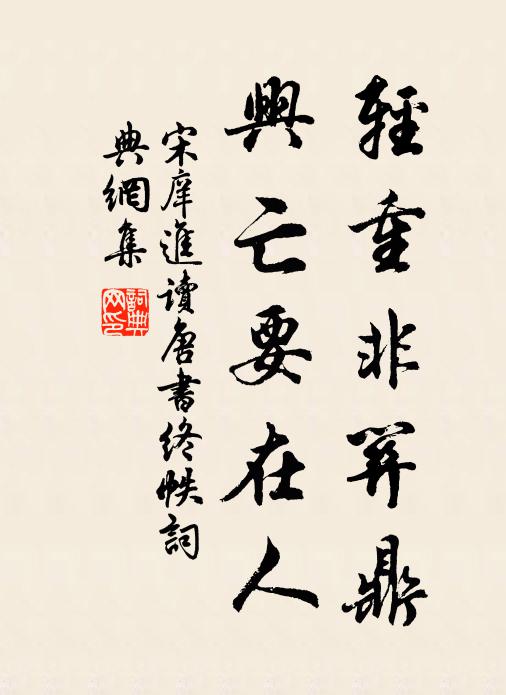 輕重非關鼎
興亡要在人
宋庠進讀唐書終帙詞
典網集
詞典
网印